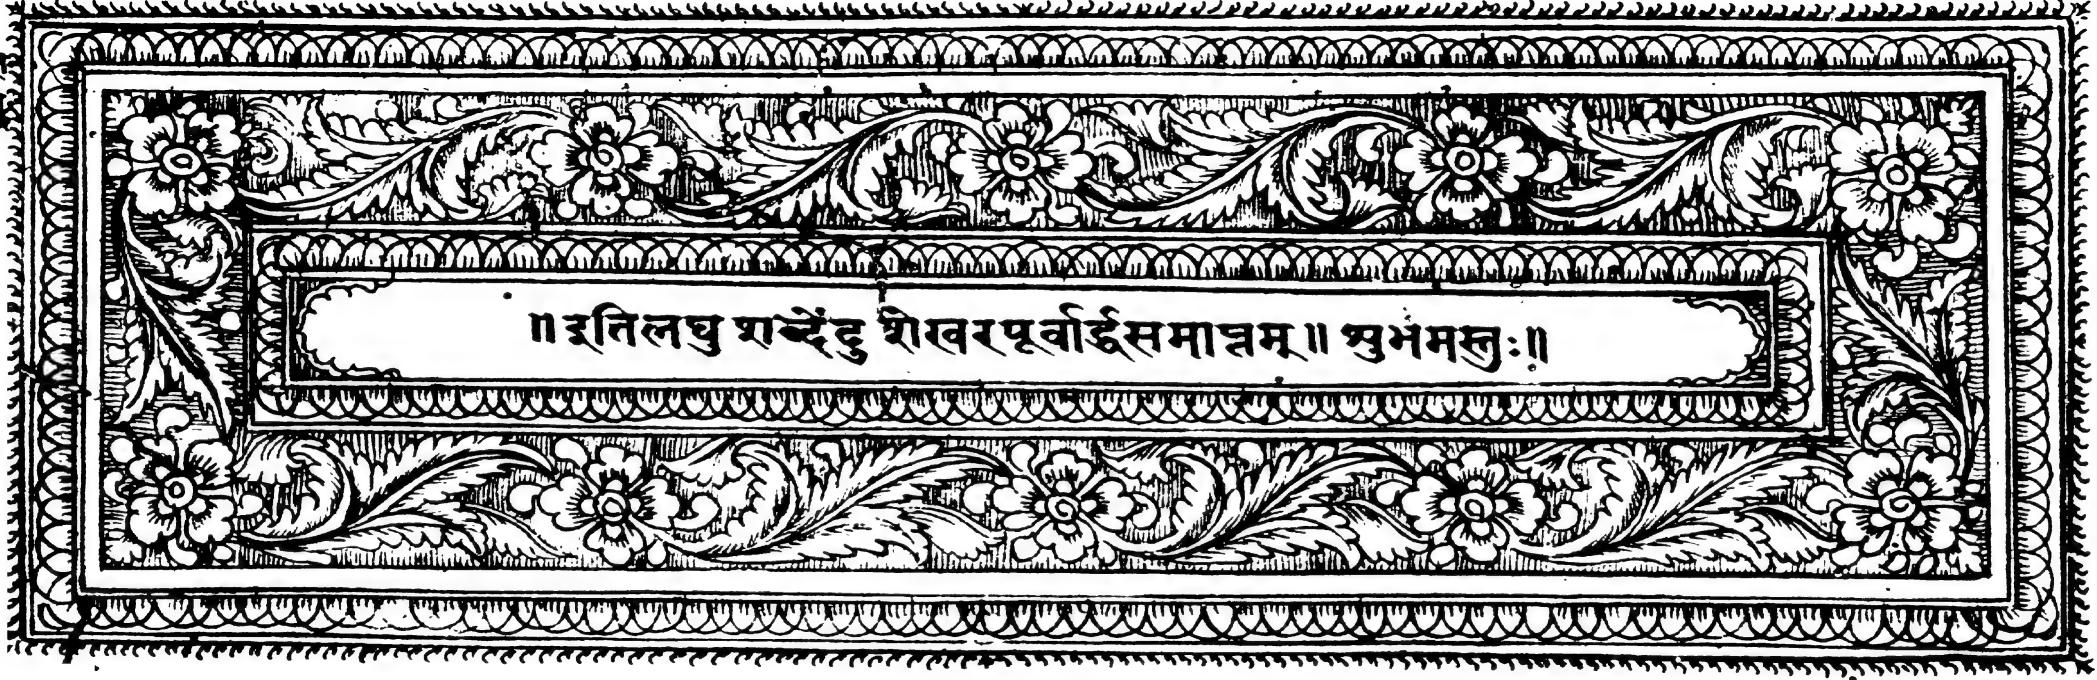 ॥ इतिलघु शब्देंदु शेखरपूर्वार्द्धसमाप्तम् ॥ श्रुभंमस्तुः ॥